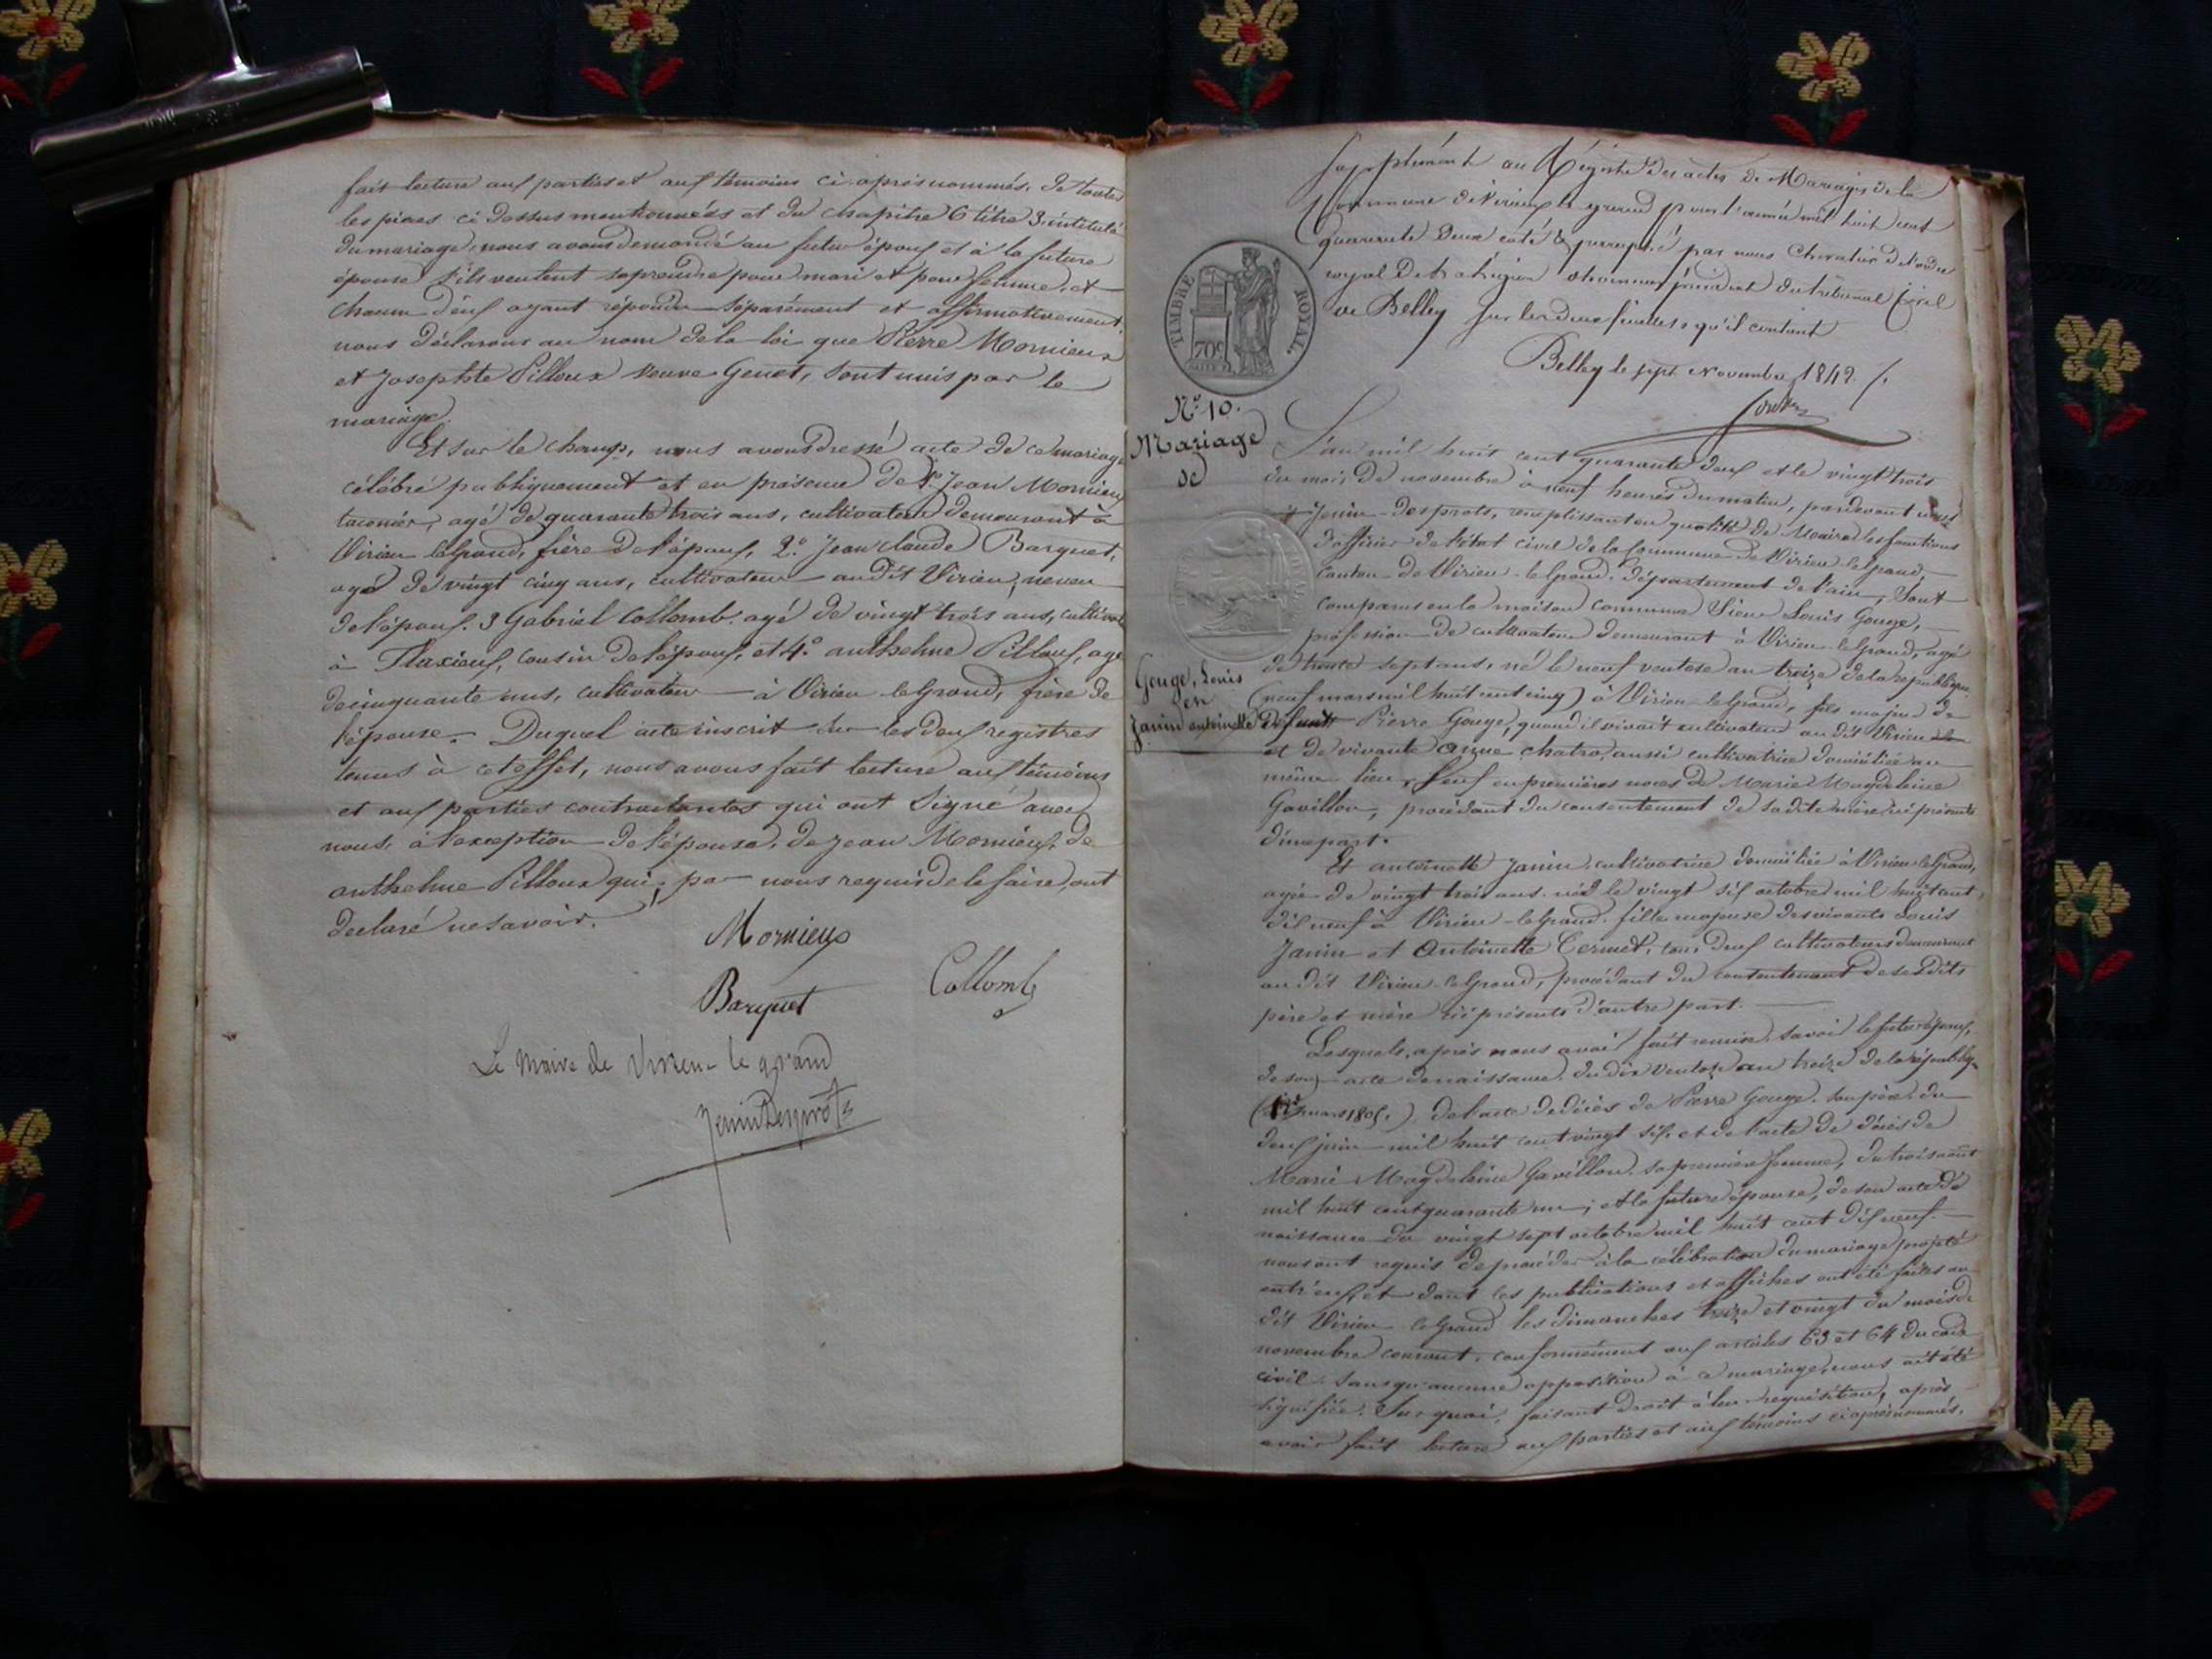 fait lecture aux parties et aux témoins ci-après nommés, de toutes
les pièces ci dessus mentionnées et du chapitre 6 titre 3. intitulé
du mariage, nous avons demandé au futur époux et à la future
épouse s'ils veulent se prendre pour mari et pour femme, et
chacun d'eux ayant répondu séparément et affirmativement,
nous déclarons au nom de la loi que Pierre Mornieux
et Josephte Pilloux veuve Genet, sont unis par le
mariage.
Et sur le champ, nous avons dressé acte de ce mariage
célébré publiquement et en présence de 1º Jean Mornieux
agé de quarante trois ans, cultivateur demeurant à
Virieu le Grand, frère de l'époux, 2º Jean Claude Barquet,
agé de vingt cinq ans, cultivateur audit Virieu, neveu
de l'époux. 3 Gabriel Collomb, agé de vingt trois ans, cultivat
à Flaxieux, cousin de l'époux, et 4º anthelme Pilloux, agé
de cinquante ans, cultivateur à Virieu le Grand, frère de
l'épouse. Duquel acte inscrit sur les deux registres
tenus à cet effet, nous avons fait lecture aux témoins
et aux parties contractantes qui ont signé avec
nous, à l'exception de l'épouse, de Jean Mornieux, de
anthelme Pilloux qui, par nous requis de le faire, ont
déclaré ne savoir.
Mornieux
Barquet Collomb
Le Maire de Virieu-le grand
Jenin Desprots
Supplément au Régistre des actes de Mariages de la
Commune de Virieu le grand pour l'année mil huit cent
quarante deux coté & paraphé par nous Chevalier de l'ordre
royal de la Légion d'honneur président du tribunal Civil
de Belley sur les deux feuilles qu'il contient
Belley le sept Novembre 1842.
TIMBRE ROYAL
70c
Nº 10.
Mariage
de
Gouge, Louis
en
Janin antoinette
L'an mil huit cent quarante deux et le vingt trois
du mois de novembre à neuf heures du matin, pardevant nous
Jenin-Desprots, remplissant en qualité de Maire les fonctions
d'officier de l'état civil de la Commune de Virieu-le-Grand,
canton de Virieu-le-Grand, département de l'ain, sont
comparus en la maison commune Sieur Louis Gouge,
profession de cultivateur demeurant à Virieu-le-Grand, agé
de trente sept ans, né le neuf ventose an treize de la république
(neuf mars mil huit cent cinq) à Virieu-le-Grand, fils majeur de
défunt Pierre Gouge, quand il vivait cultivateur au dit Virieu
et de vivante anne chatro, aussi cultivatrice domiciliée au
même lieu, veuf en premières noces de Marie Magdeleine
Gavillon, procédant du consentement de sadite mère, ici présente
d'une part.
Et antoinette Janin, cultivatrice domiciliée à Virieu-le-Grand,
agée de vingt trois ans, née le vingt six octobre mil huit cent
dix neuf à Virieu-le-Grand, fille majeure des vivants Louis
Janin et Antoinette Cermet, tous deux cultivateurs demeurant
au dit Virieu-le-Grand, procédant du contentement de sesdits
père et mère ici présents d'autre part.
Lesquels, après nous avoir fait remise, savoir le futur époux,
de son acte de naissance, du dix ventose an treize de la républiq.
( mars 1805.), de l'acte de décès de Pierre Gouge, son père, du
deux juin mil huit cent vingt six, et de l'acte de décès de
Marie Magdeleine Gavillon, sa première femme, du trois août
mil huit cent quarante un; et la future épouse, de son acte de
naissance du vingt sept octobre mil huit cent dix neuf.
nous ont requis de procéder à la célébration du mariage projeté
entr'eux, et dont les publications et affiches ont été faites au
dit Virieu-le-Grand les dimanches treize et vingt du mois de
novembre courant, conformément aux articles 63 et 64 du code
civil, sans qu'aucune opposition à ce mariage, nous ait été
signifiée. Sur quoi, faisant droit à leur réquisition, après
avoir fait lecture aux parties et aux témoins ci après nommés,